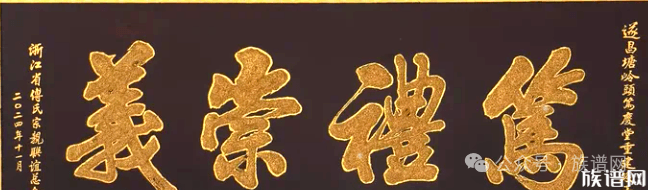 遂昌塘岭頭篤慶堂重建
篤禮崇義
浙江省傅氏宗親聯誼总
二〇二四年十一月
公众号·族谱网
族谱网